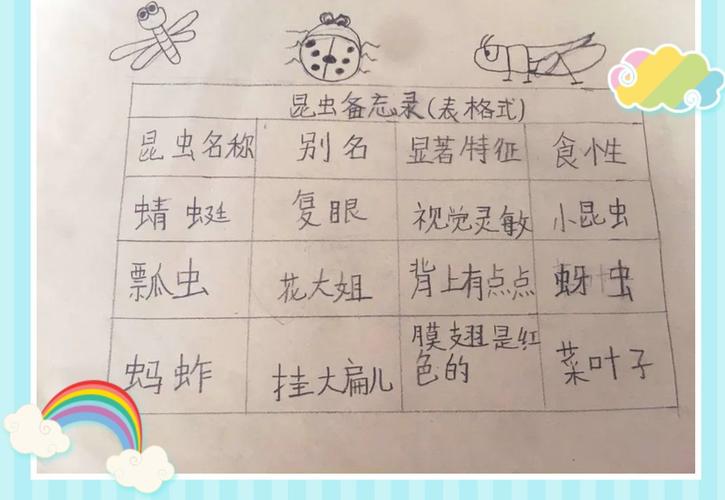 昆虫备忘录(表格式)
昆虫名称 别名 显著特征 食性
蜻蜓 复眼 视觉灵敏 小昆虫
瓢虫 花大姐 背上有点点 蚜虫
蚂蚱 挂大扁儿 膜翅是红
色的 菜叶子